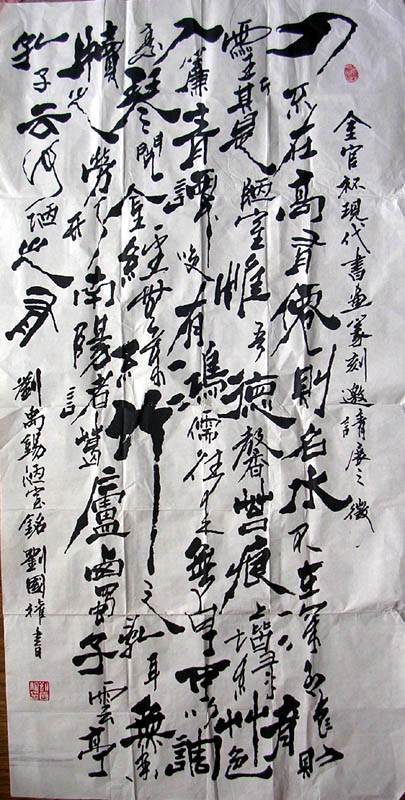 金官杯現代書画篆刻邀請展之徵
山不在高有僊則名水不在深有龍則
靈斯是陋室惟吾德馨苔痕上堦綠艸色
入簾青談笑有鴻儒往來無白丁可以調
素琴閱金經無絲竹之亂耳無案
牘之勞形南陽諸葛廬西蜀子雲亭
孔子云何陋之有
劉禹錫陋室銘 劉國權書